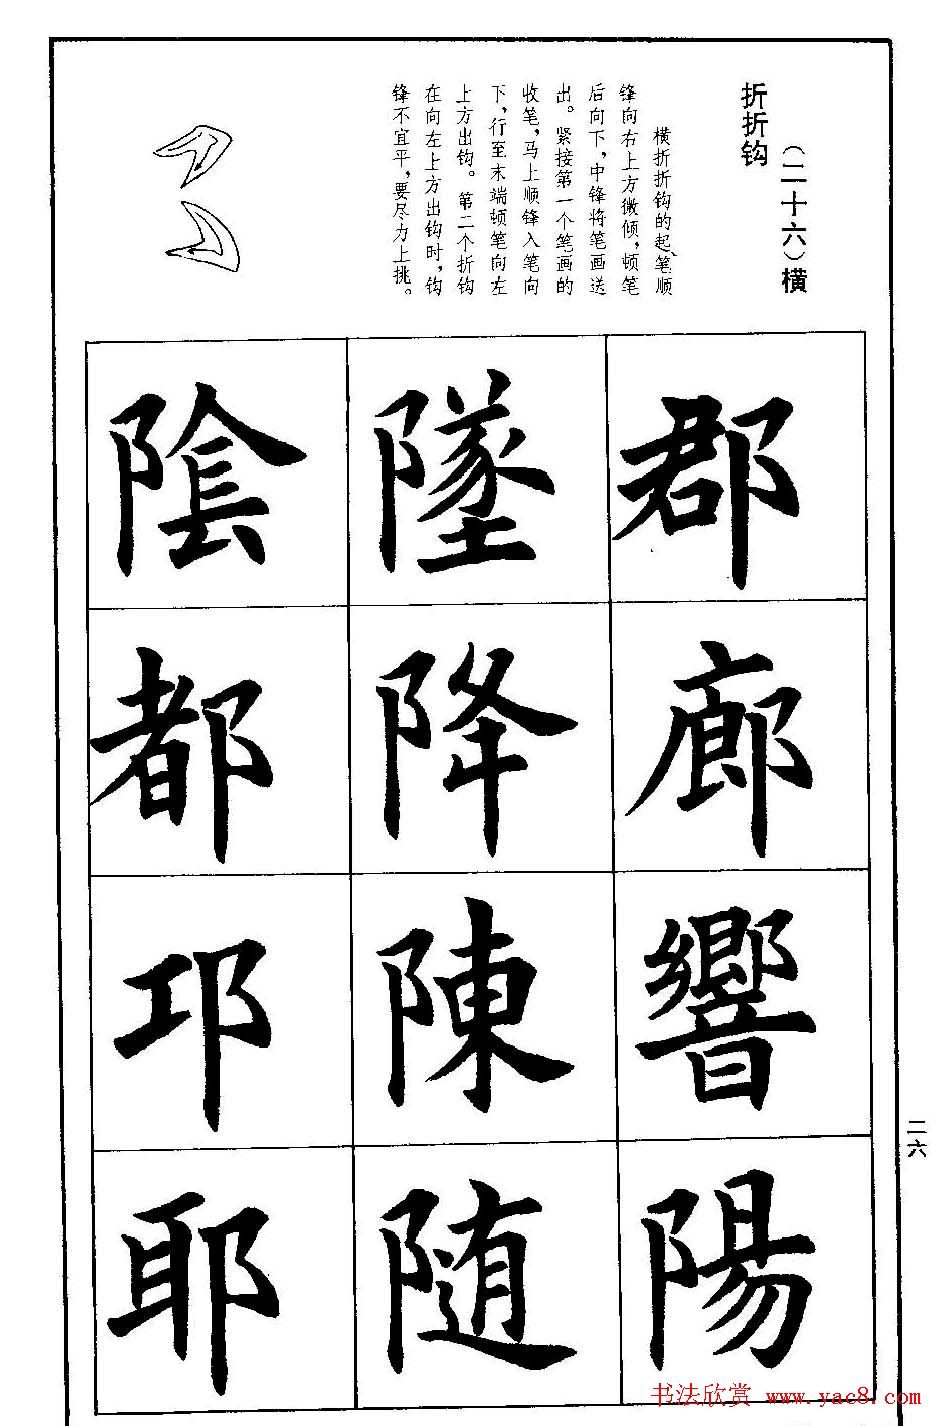 (二十六)横
折折钩
横折折钩的起笔顺
锋向右上方微倾,顿笔
后向下,中锋将笔画送
出。紧接第一个笔画的
收笔,马上顺锋入笔向
下,行至末端顿笔向左
上方出钩。第二个折钩
在向左上方出钩时,钩
锋不宜平,要尽力上挑。
郡
廊
響
陽
墜
降
陳
随
陰
都
邛
耶
二六
书法欣赏 www.yac8.com